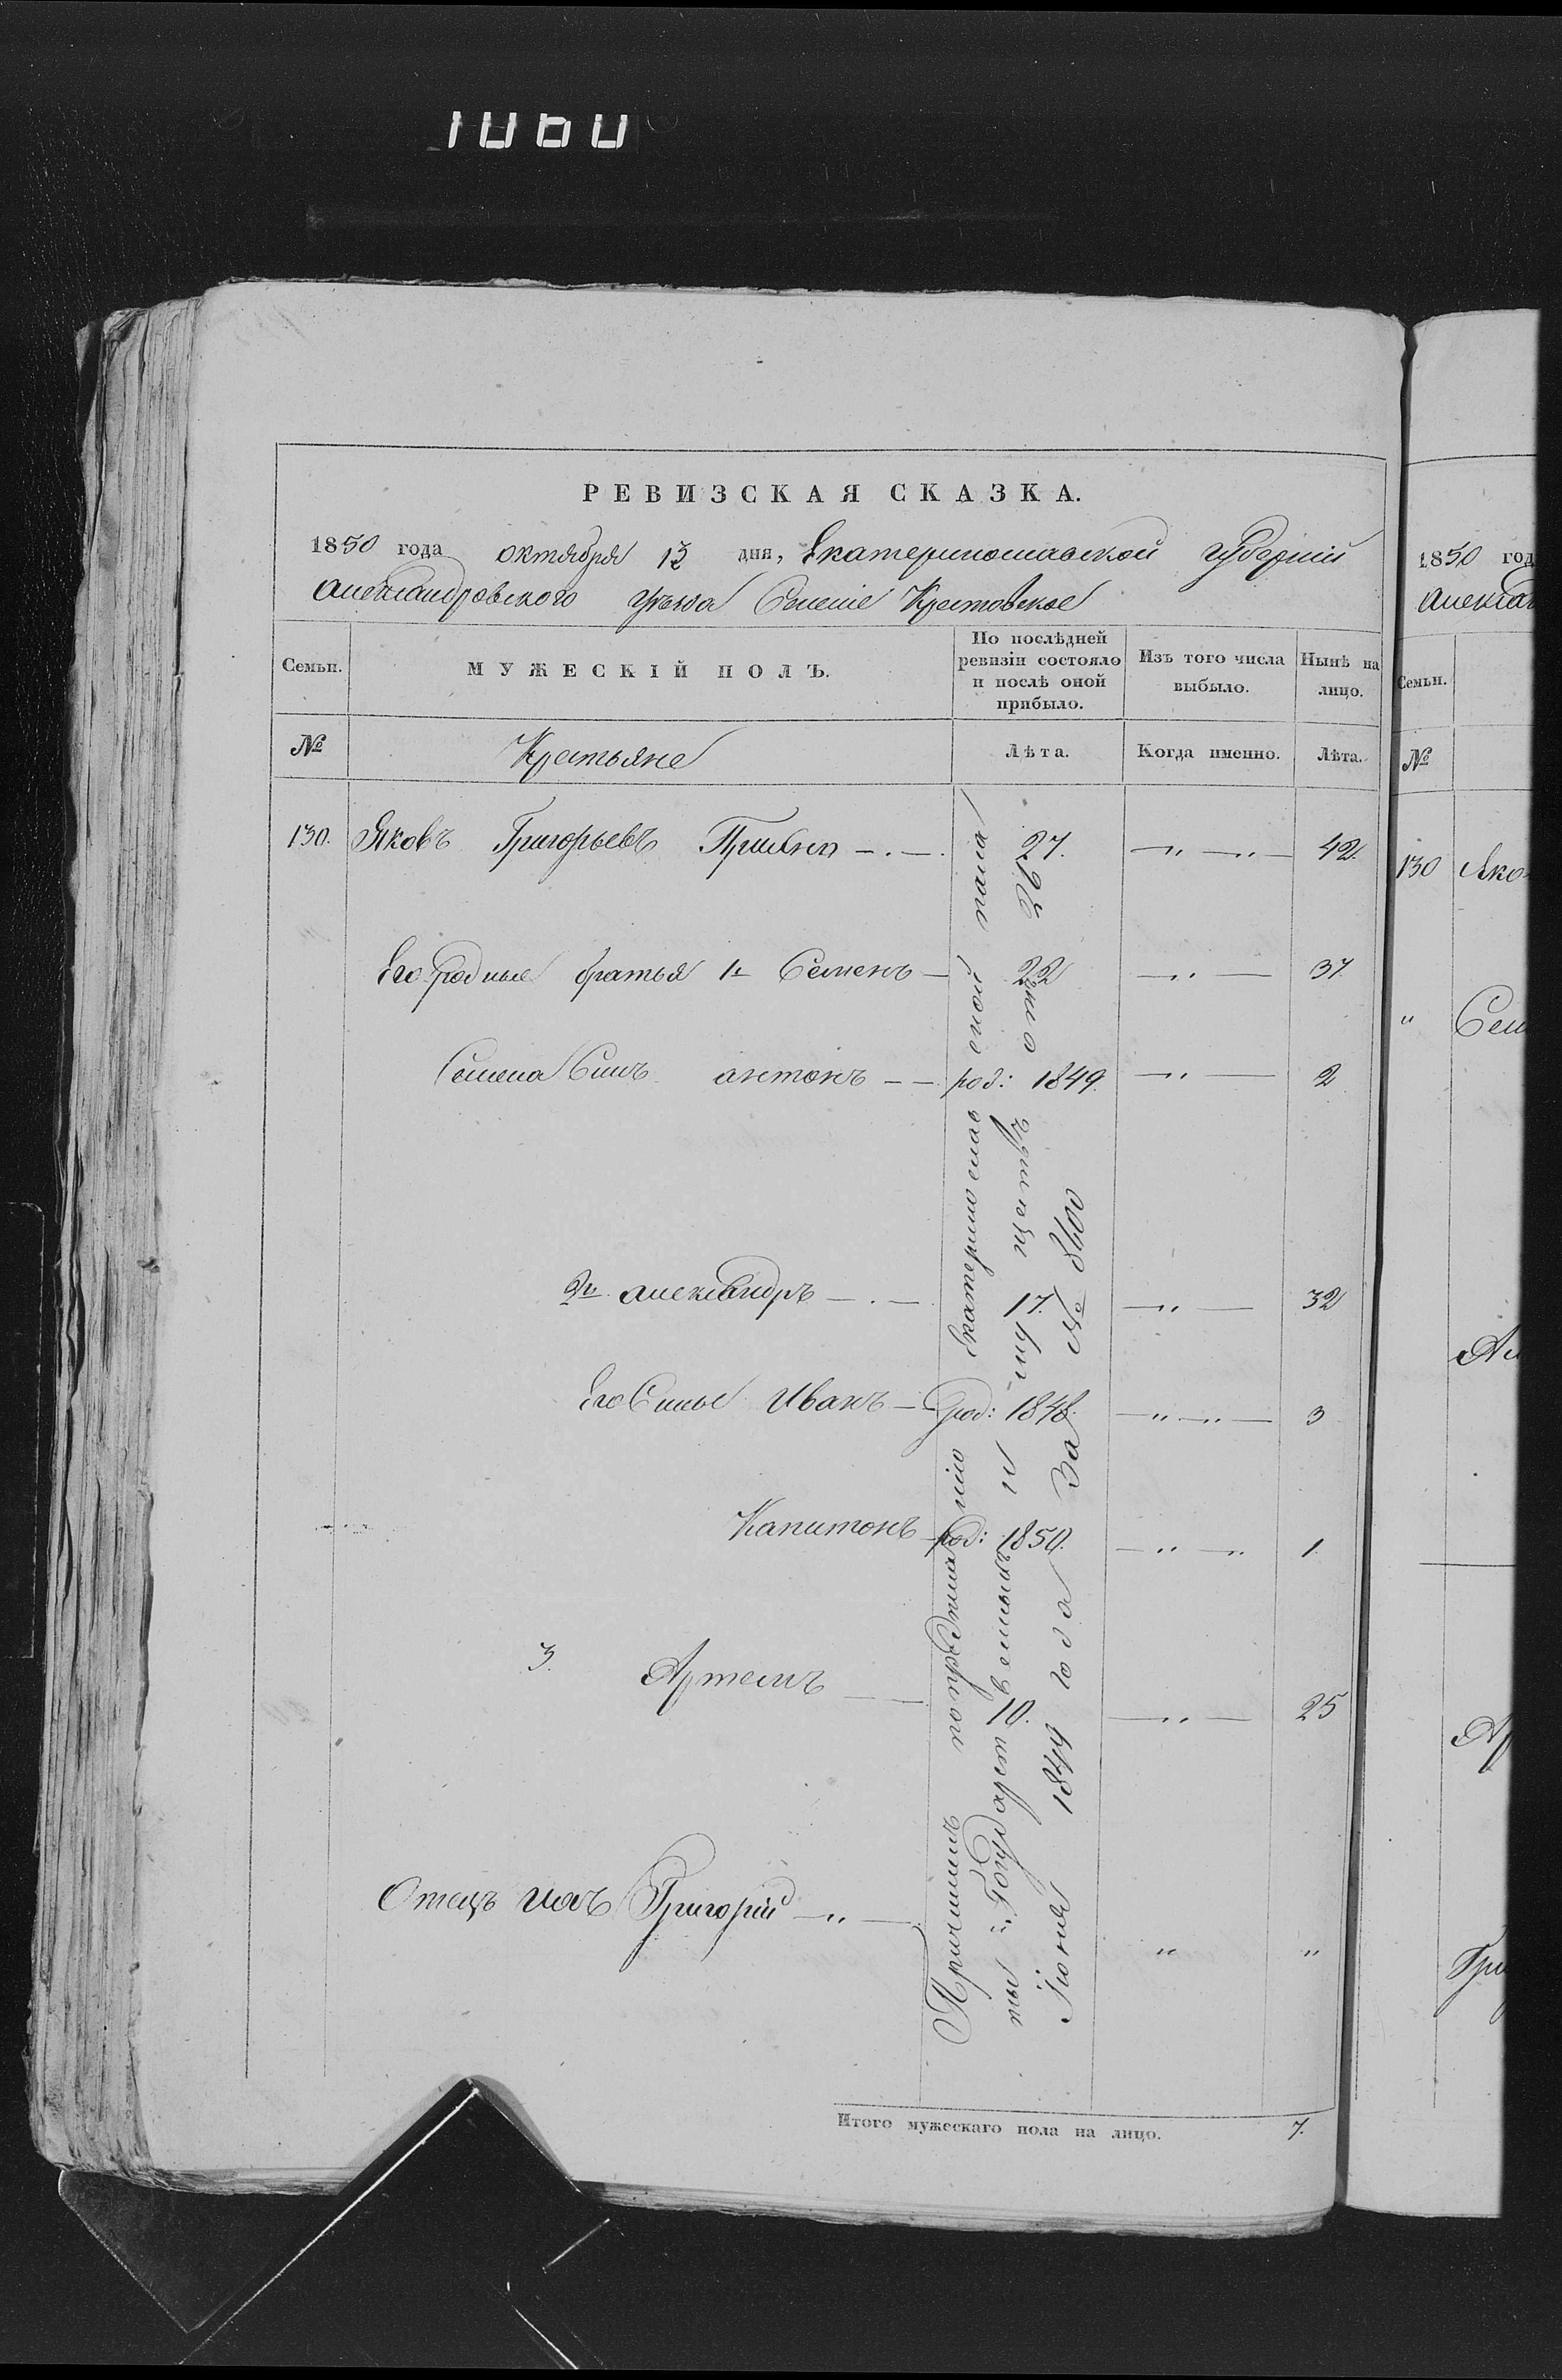 1060
РЕВИЗСКАЯ СКАЗКА.
1850 года октября 13 дня, Екатеринославской губерніи
Александровского уезда Селеніе Крестовское
Семьи. МУЖЕСКІЙ ПОЛЪ. По послѣдней ревизіи состояло и послѣ оной прибыло. Изъ того числа выбыло. Нынѣ на лицо.
№ Крестьяне Лѣта. Когда именно. Лѣта.
130. Яковъ Григорьевъ 27. 42.
Его родные братья 1й Семенъ 22 37.
Семена Сынъ антонъ род: 1849. 2
2й александръ 17. 32
Его Сынъе Иванъ род: 1848. 3
Капитонъ род: 1850. 1.
3. Артемъ 10. 25
Отецъ ихъ Григорій " "
по предписанію Екатеринослав ской пала
ты Государст венныхъ и му ществъ отъ 26
Іюня 1849 года За № 8600
Итого мужескаго пола на лицо. 7.
1850 год
Алексан
Семьи.
№
130 Яко
" Сем
Ал
Ар
Гри